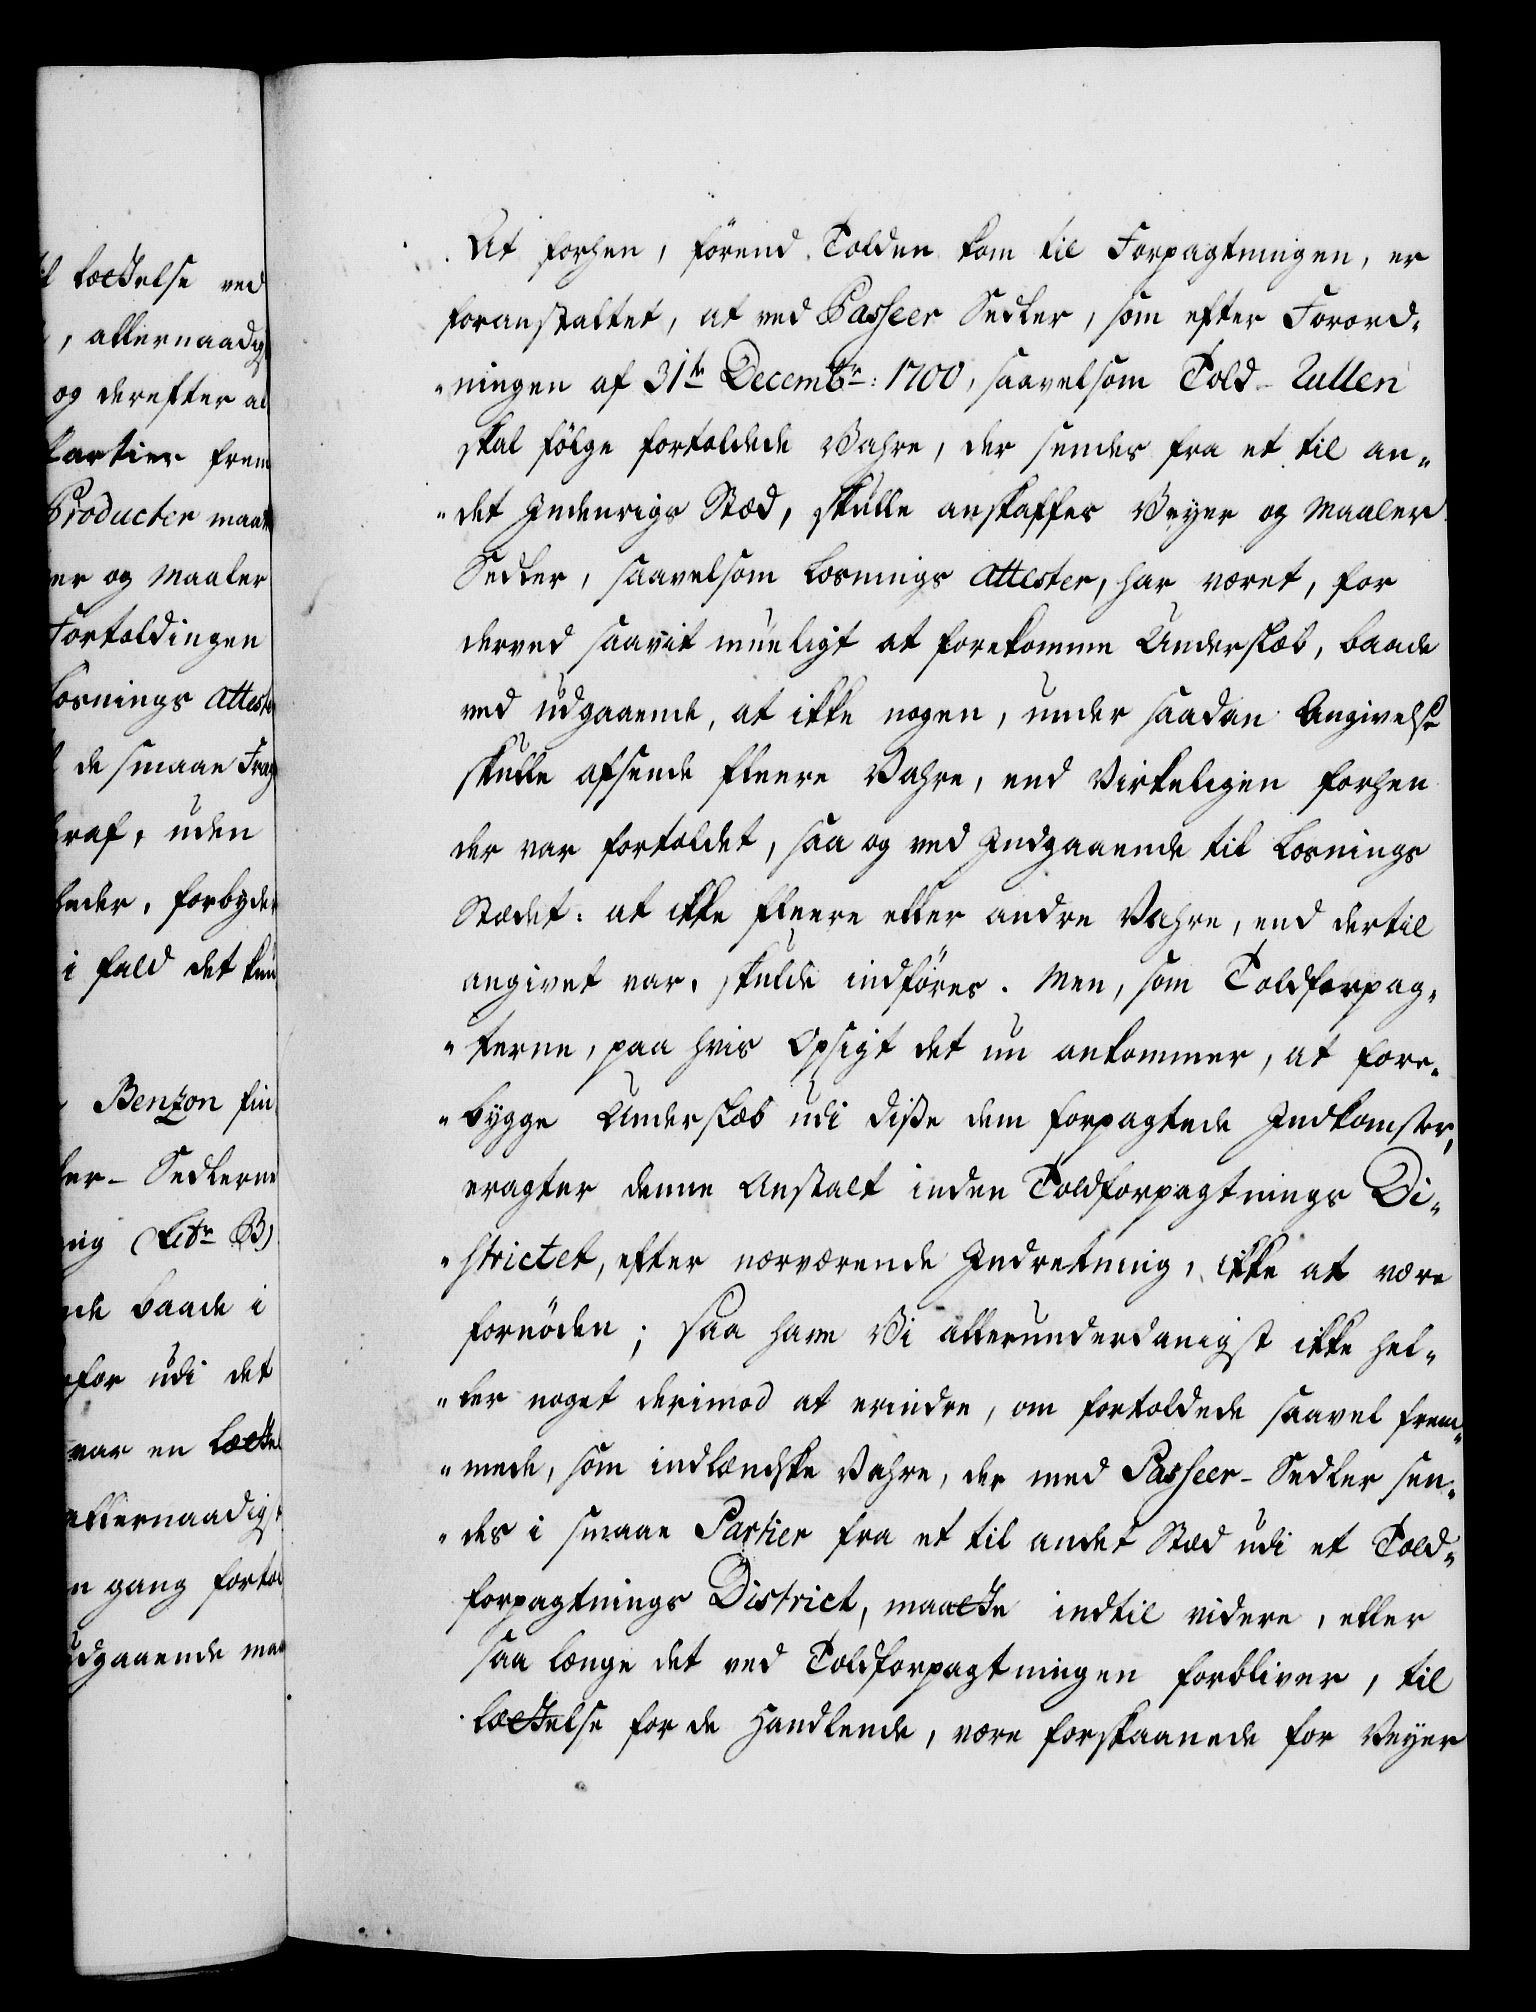 l lættelse ved
, allernaadigst
og derefter al
Partier frem
Producter maatte
er og Maaler
Fortoldingen
losnings Attester
de smaae Frag
hraf, uden
heder, forbyder
i fald det kun
Benzon fin
ler- Sedlerne
nig (Litr B)
nde baade i
for udi det
var en lættel
allernaadigst
n gang fortol
udgaaende maa
At forhen, förend Tolden kom til Forpagtningen, er
foranstaltet, at ved Passeer Sedler, som efter Forord-
"ningen af 31te Decembr: 1700, saavelsom Told-Rullen
skal fölge fortoldede Vahre, der sendes fra et til an-
"det Indenrigs Stæd, skulle anskaffes Veyer og Maaler
Sedler, saavelsom losnings Attester, har været, for
derved saavit mueligt at forekomme Underslæb, baade
ved udgaaende, at ikke nogen, under saadan Angivelse
skulle afsende fleere Vahre, end Virkeligen forhen
der var fortoldet, saa og ved Indgaaende til losnings
Stædet: at ikke fleere eller andre Vahre, end dertil
angivet var, skulde indföres. Men, som Toldforpag-
"terne, paa hvis Opsigt det nu ankommer, at fore-
"bygge Underslæb udi disse dem forpagtede Indkomster,
eragter denne Anstalt inden Toldforpagtnings Di-
"strictet, efter nærværende Indretning, ikke at være
fornöden; saa have Vi allerunderdanigst ikke hel-
"ler noget derimod at erindre, om fortoldede saavel frem-
"mede, som indlændske Vahre, der med Passeer-Sedler sen-
"des i smaae Partier fra et til andet Stæd udi et Told-
forpagtnings District, maatte indtil videre, eller
saa længe det ved Toldforpagtningen forbliver, til
lættelse for de Handlende, være forskaanede for Veyer